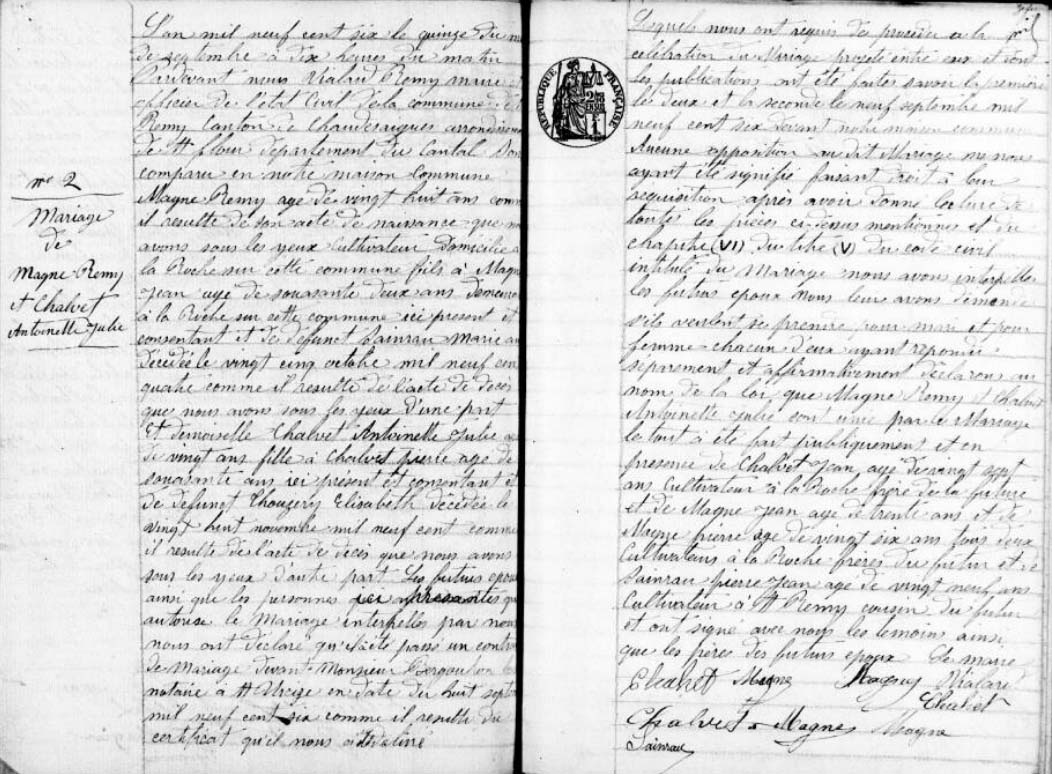 nº 2
Mariage
de
Magne Remy
et Chalvet
Antoinette Julie
L'an mil neuf cent six le quinze du
de septembre à dix heures du matin
Pardevant nous Vialard Remy maire
officier de l'etat Civil dela commune de
Remy Canton de Chaudesaigues arrondisseme
de St flour departement du Cantal Son
comparu en notre maison Commune
Magne Remy age de vingt huit ans comm
il resulte de son acte de naissance que n
avons sous les yeux Cultivateur Domicilié a
la Roche sur cette commune fils à Magn
Jean age de souasante deux ans demeur
à la Roche sur cette commune ici present et
consentant et de defunct Sainrau Marie
décédée le vingt cinq octobre mil neuf cen
quatre comme il resulte de l'acte de decès
que nous avons sous les yeux d'une part
Et demoiselle Chalvet Antoinette Julie
de vingt ans fille à Chalvet pierre age de
souasante ans ici present et consentant et
de defunct Elisabeth décédée le
vingt huit novembre mil neuf cent comme
il resulte de l'acte de decès que nous avons
sous les yeux d'autre part Les futurs epou
ainsi que les personnes ici presantes qu
autorise le Mariage interpellés par nou
nous ont déclaré qu'il à été passé un contr
de Mariage devant Monsieur
notaire à St Urcize en date du huit sept
mil neuf cent six comme il resulte du
certificat qu'il nous à délivré
Lesquels nous ont requis de proceder a la
celebration du Mariage projeté entre eux et dont
les publications ont été faites savoir la première
le deux et la seconde le neuf septembre mil
neuf cent six devant notre maison commune
Aucune opposition au dit Mariage ne nou
ayant été signifié faisant droit à leur
requisition après avoir donné lecture de
toutes les pièces ci-dessus mentionnes et du
chapitre (VI) du titre (V) du code civil
intitulé du Mariage nous avons interpelle
les futurs epoux Nous leur avons demandé
s'ils veulent se prendre pour mari et pour
femme chacun d'eux ayant repondu
séparement et affirmativement déclarons au
nom de la loi que Magne Remy et Chalvet
Antoinette Julie sont unie par le Mariage
le tout à été fait publiquement et en
presence de Chalvet Jean age de vingt sept
ans Cultivateur à la Roche frère de la future
et de Magne Jean age de trente ans et de
Magne pierre age de vingt six ans tous deux
Cultivateurs à la Roche frères du futur et de
Sainrau pierre Jean age de vingt neuf ans
Cultivateur à St Remy cousin du futur
et ont signé avec nous les temoins ainsi
que les pères des futurs epoux Le maire
Chalvet Magne Magne Vialard
Chalvet
Chalvet Magne Magne
Sainrau
REPUBLIQUE FRANÇAISE